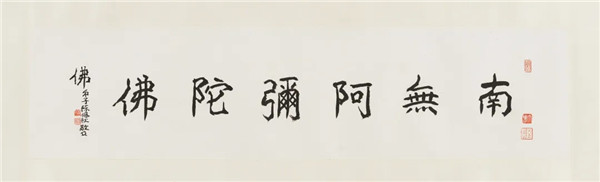 南無阿彌陀佛
佛弟子